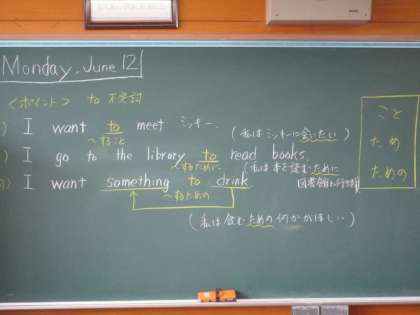 Monday, June 12
<ポイント> to 不定詞
I want to meet ミッキー.
~すること
(私はミッキーに会いたい)
I go to the library to read books.
~するために
(私は本を読むために
図書館に行きます)
I want something to drink
~するための
(私は飲むための何かがほしい.)
こと
ため
ための